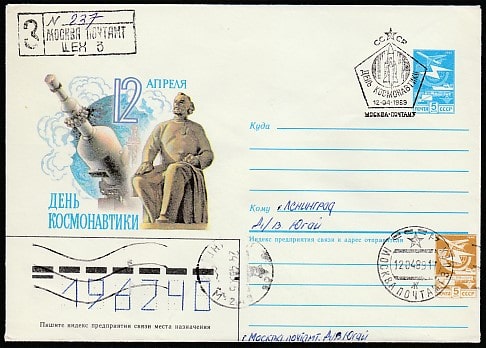 З
N 237
МОСКВА ПОЧТАМТ
ЦЕХ 3
12 АПРЕЛЯ
ДЕНЬ
КОСМОНАВТИКИ
СССР
ДЕНЬ КОСМОНАВТИКИ
12·04·1989
МОСКВА-ПОЧТАМТ
ПОЧТА 5 СССР
Куда
Кому г. Ленинград
А/я Югай
Индекс предприятия связи и адрес отправителя
12 04 89
МОСКВА ПОЧТАМТ
5
СССР
196240
Пишите индекс предприятия связи места назначения
г. Москва, почтамт. А/я Югай